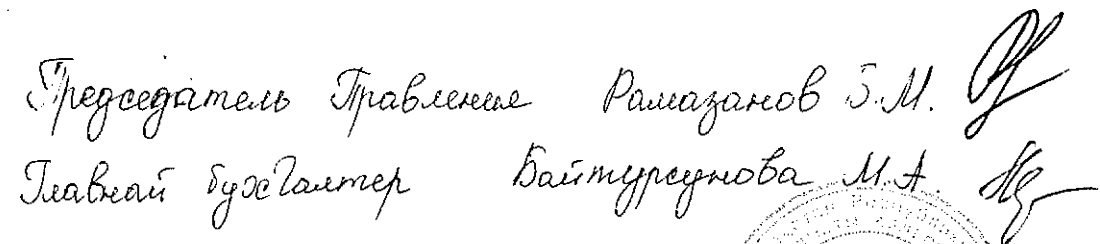 Председатель Правления Рамазанов Б.М.
Главный бухгалтер Байтурсунова М.А.